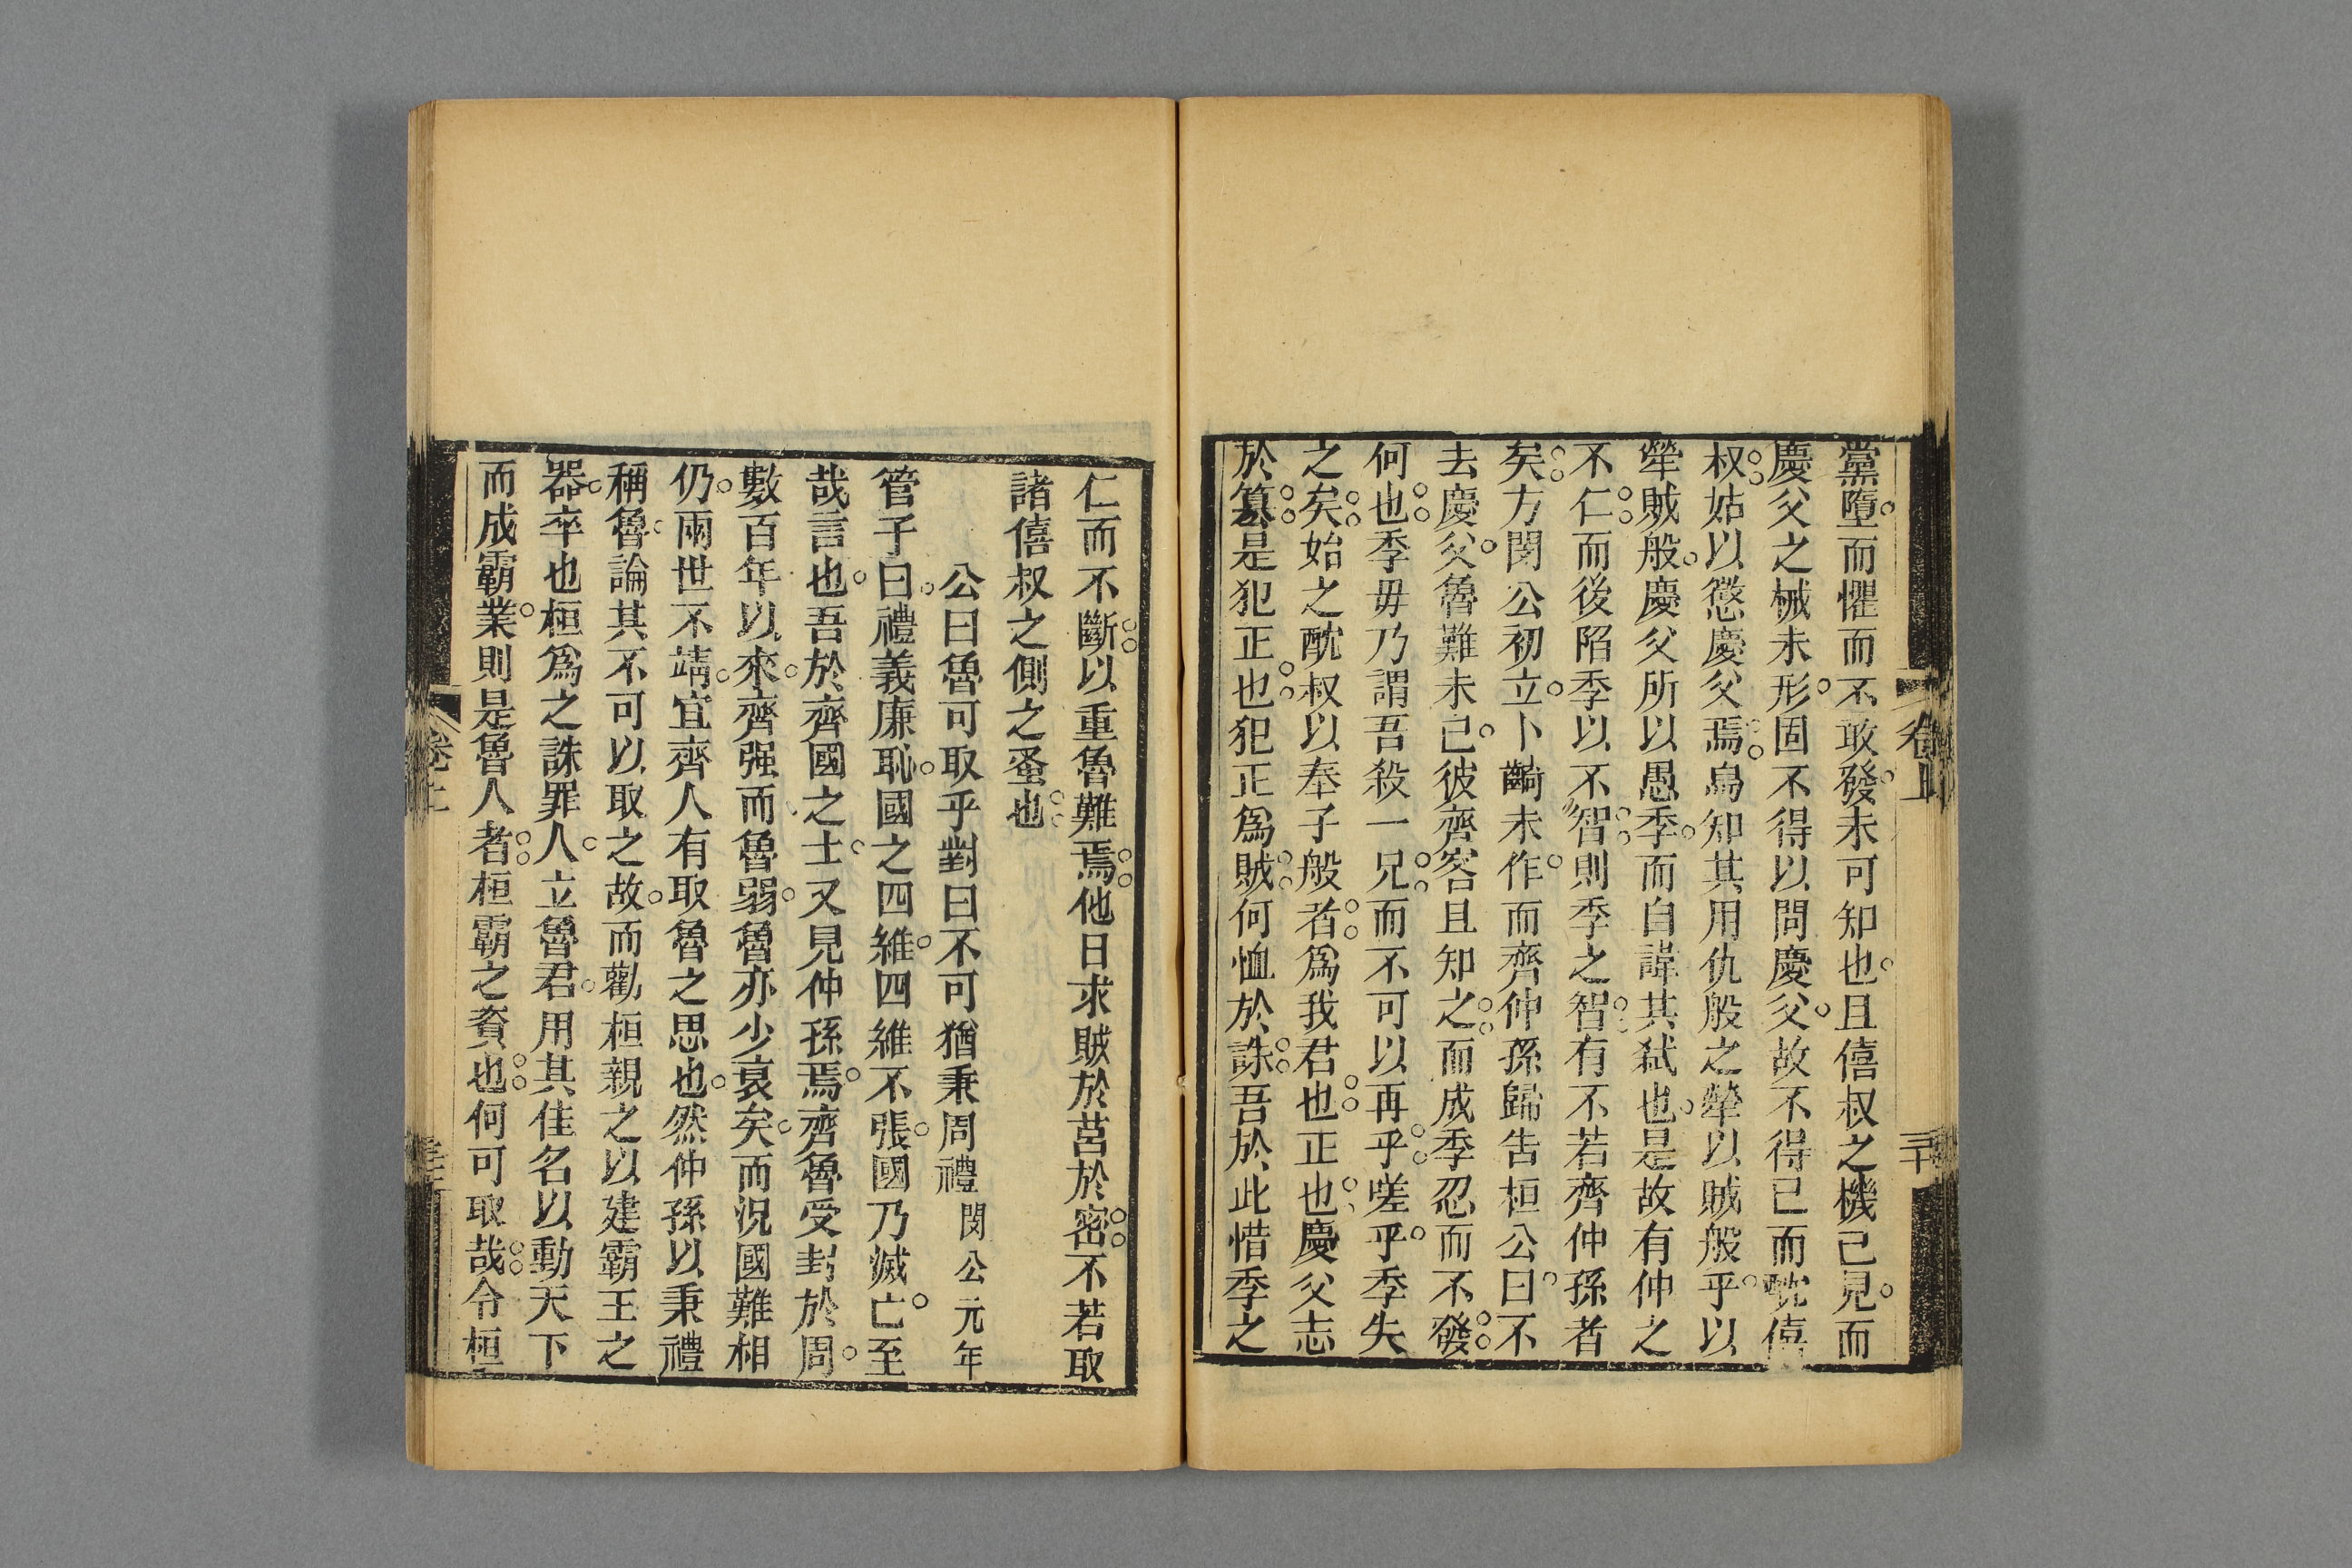 黨墮而懼而不敢發未可知也且僖叔之機已見而
慶父之械未形固不得以問慶父故不得已而酖僖
叔姑以懲慶父焉烏知其用仇般之犖以賊般乎以
犖賊般慶父所以愚季而自諱其弑也是故有仲之
不仁而後陷季以不智則季之智有不若齊仲孫者
矣方閔公初立卜齮未作而齊仲孫歸告桓公曰不
去慶父魯難未已彼齊客且知之而成季忍而不發
何也季毋乃謂吾殺一兄而不可以再乎嗟乎季失
之矣始之酖叔以奉子般者為我君也正也慶父志
於篡是犯正也犯正為賊何恤於誅吾於此惜季之
卷上
三十
仁而不斷以重魯難焉他日求賊於莒於密不若取
諸僖叔之側之蚤也
公曰魯可取乎對曰不可猶秉周禮 閔公元年
管子曰禮義廉恥國之四維四維不張國乃滅亡至
哉言也吾於齊國之士又見仲孫焉齊魯受封於周
數百年以來齊强而魯弱魯亦少衰矣而況國難相
仍兩世不靖宜齊人有取魯之思也然仲孫以秉禮
稱魯論其不可以取之故而勸桓親之以建霸王之
器卒也桓爲之誅罪人立魯君用其佳名以動天下
而成霸業則是魯人者桓霸之資也何可取哉令桓
卷上